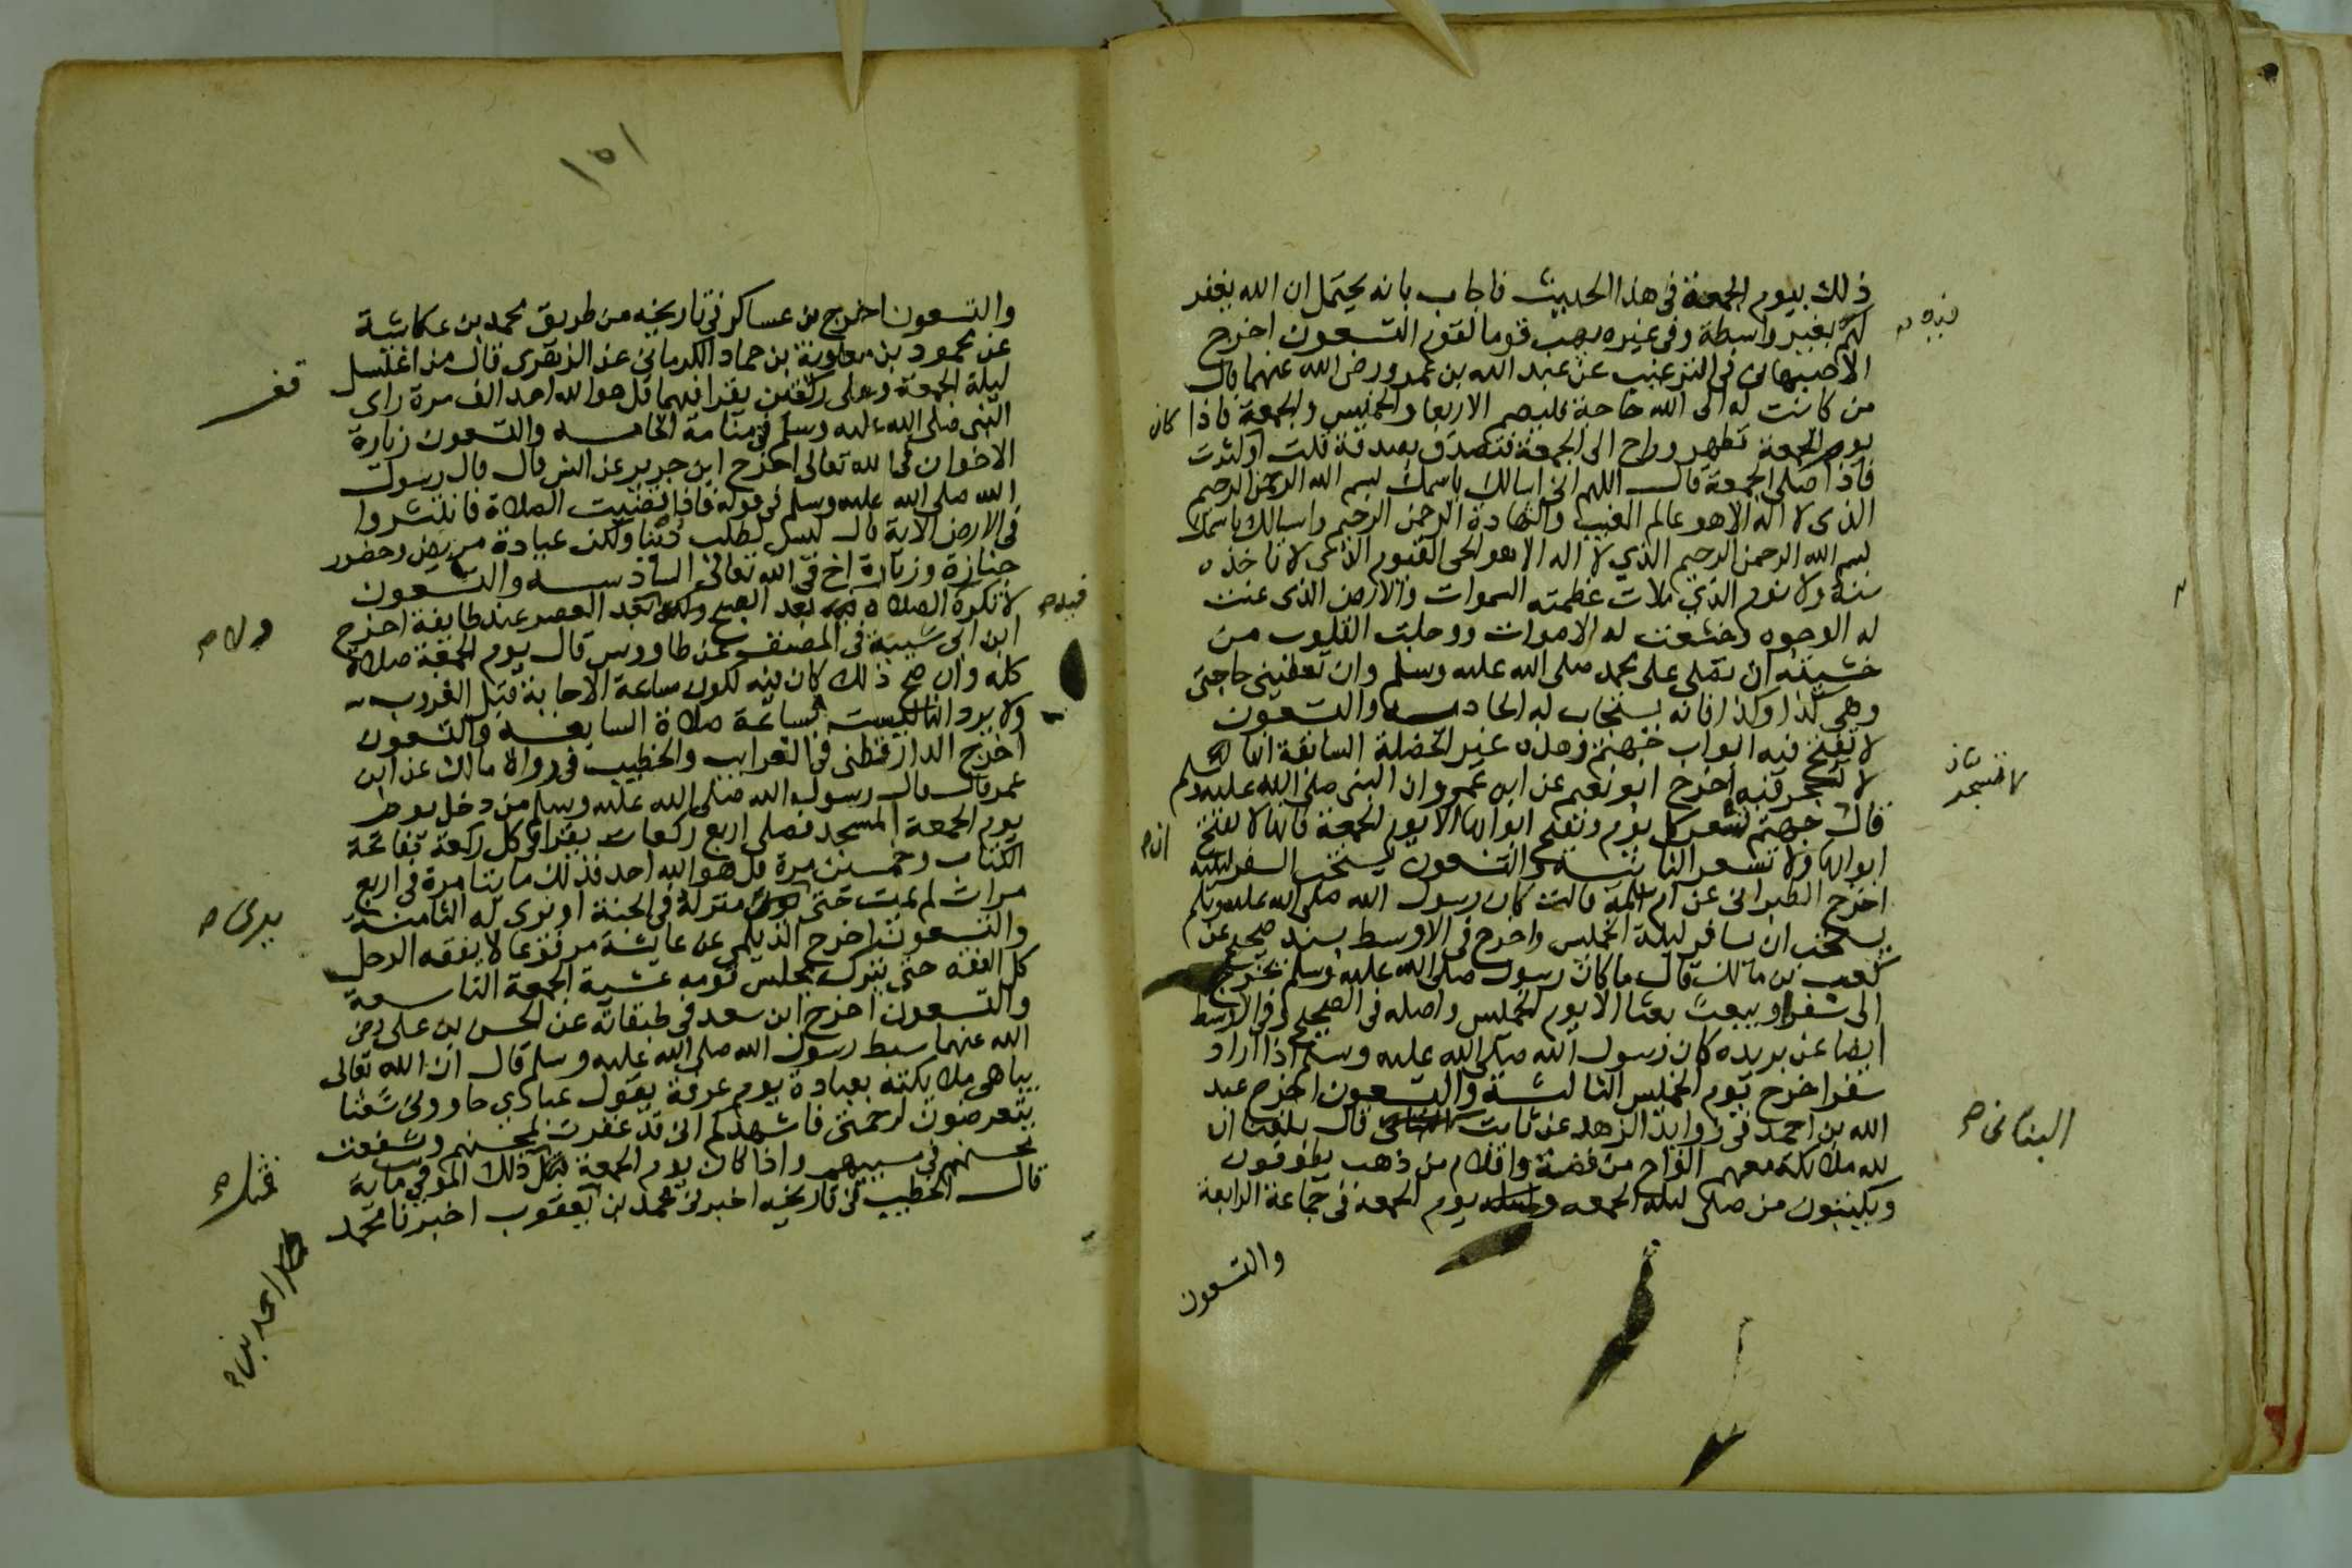 ذلك بيوم الجمعة في هذا الحديث فاجاب بانه يحتمل ان الله يغفر
لهم بغير واسطة وفي غيره يهب قوما لقوم التسعون اخرج
الاصبهاني في الترغيب عن عبد الله بن عمرو رضي الله عنهما قال
من كانت له الى الله حاجة فليصم الاربعا والخميس والجمعة فاذا كان
يوم الجمعة تطهر وراح الى الجمعة فتصدق بصدقة قلت او كثرت
فاذا صلى الجمعة قال اللهم اني اسالك باسمك بسم الله الرحمن الرحيم
الذي لا اله الا هو عالم الغيب والشهادة الرحمن الرحيم واسالك باسمك
بسم الله الرحمن الرحيم الذي لا اله الا هو الحي القيوم الذي لا تاخذه
سنة ولا نوم الذي ملات عظمته السموات والارض الذي عنت
له الوجوه وخشعت له الاصوات ووجلت القلوب من
خشيته ان تصلي على محمد صلى الله عليه وسلم وان تعطيني حاجتي
وهي كذا وكذا فانه يستجاب له الحادية والتسعون
لا تفتح فيه ابواب جهنم وهذه غير الخصلة السابقة انها
لا تسجر فيه اخرج ابو نعيم عن ابن عمرو ان النبي صلى الله عليه وسلم
قال جهنم تسعر كل يوم وتفتح ابوابها الا يوم الجمعة فانها لا تفتح
ابوابها ولا تسعر الثانية والتسعون يستحب السفر ليلته
اخرج الطبراني عن ام سلمة قالت كان رسول الله صلى الله عليه وسلم
يستحب ان يسافر ليلة الخميس واخرج في الاوسط بسند صحيح عن
كعب بن مالك قال ما كان رسول صلى الله عليه وسلم يخرج
الى سفر او يبعث بعثا الا يوم الخميس واصله في الصحيح وفي الاوسط
ايضا عن بريده كان رسول الله صلى الله عليه وسلم اذا اراد
سفرا خرج يوم الخميس الثالثة والتسعون اخرج عبد
الله بن احمد في زوايد الزهد عن ثابت قال بلغنا ان
لله ملائكة معهم الواح من فضة واقلام من ذهب يطوفون
ويكتبون من صلى ليلة الجمعه ويوم الجمعة في جماعة الرابعة
والتسعون
فيه
لا تسجر
انه
البناني صح
١٥١
والتسعون اخرج بن عساكر في تاريخه من طريق محمد بن عكاشة
عن محمود بن معاوية بن حماد الكرماني عن الزهري قال من اغتسل
ليلة الجمعة وصلى ركعتين يقرا فيهما قل هو الله احد الف مرة راى
النبي صلى الله عليه وسلم في منامه الخامسه والتسعون زيارة
الاخوان في الله تعالى اخرج ابن جرير عن انس قال قال رسول
الله صلى الله عليه وسلم في قوله فاذا قضيت الصلاة فانتشروا
في الارض الاية قال ليس لطلب دنيا ولكن عيادة مريض وحضور
جنازة وزيارة اخ في الله تعالى السادسه والتسعون
لا تكره الصلاة فيه بعد الصبح ولا بعد العصر عند طايفة اخرج
ابن ابي شيبة في المصنف عن طاووس قال يوم الجمعة صلاة
كله وان صح ذلك كان فيه لكون ساعة الاجابة قبل الغروب
ولا يرد انها ليست بساعة صلاة السابعة والتسعون
اخرج الدارقطني في الغرايب والخطيب في رواة مالك عن ابن
عمر قال قال رسول الله صلى الله عليه وسلم من دخل يوم
يوم الجمعة المسجد فصلى اربع ركعات يقرا في كل ركعة بفاتحة
الكتاب وخمسين مرة قل هو الله احد فذلك مائتا مرة في اربع
مرات لم يمت حتى منزله في الجنة او يرى له الثامنة
والتسعون اخرج الديلمي عن عايشة مرفوعا لا يفقه الرجل
كل الفقه حتى يترك مجلس قومه عشية الجمعة التاسعة
والتسعون اخرج ابن سعد في طبقاته عن الحسن بن علي رضي
الله عنهما سبط رسول الله صلى الله عليه وسلم قال ان الله تعالى
يباهي ملايكته بعباده يوم عرفة يقول عبادي جاووني شعثا
يتعرضون لرحمتي فاشهدكم اني قد غفرت لمحسنهم وشفعت
محسنهم في مسييهم واذا كان يوم الجمعة فمثل ذلك الموفي ماية
قال الخطيب في تاريخه اخبرني محمد بن يعقوب اخبرنا محمد
قبله صح
ولا صح
يرى صح